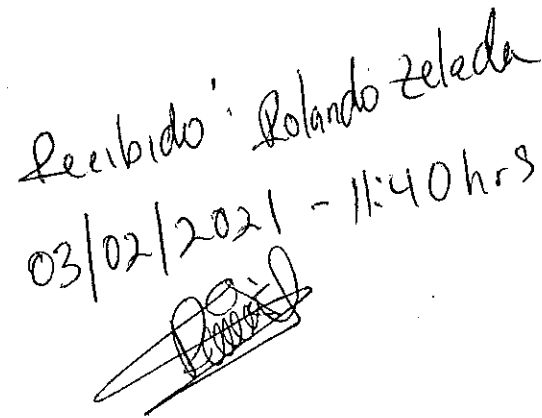 Recibido: Rolando Zelada
03/02/2021 - 11:40 hrs